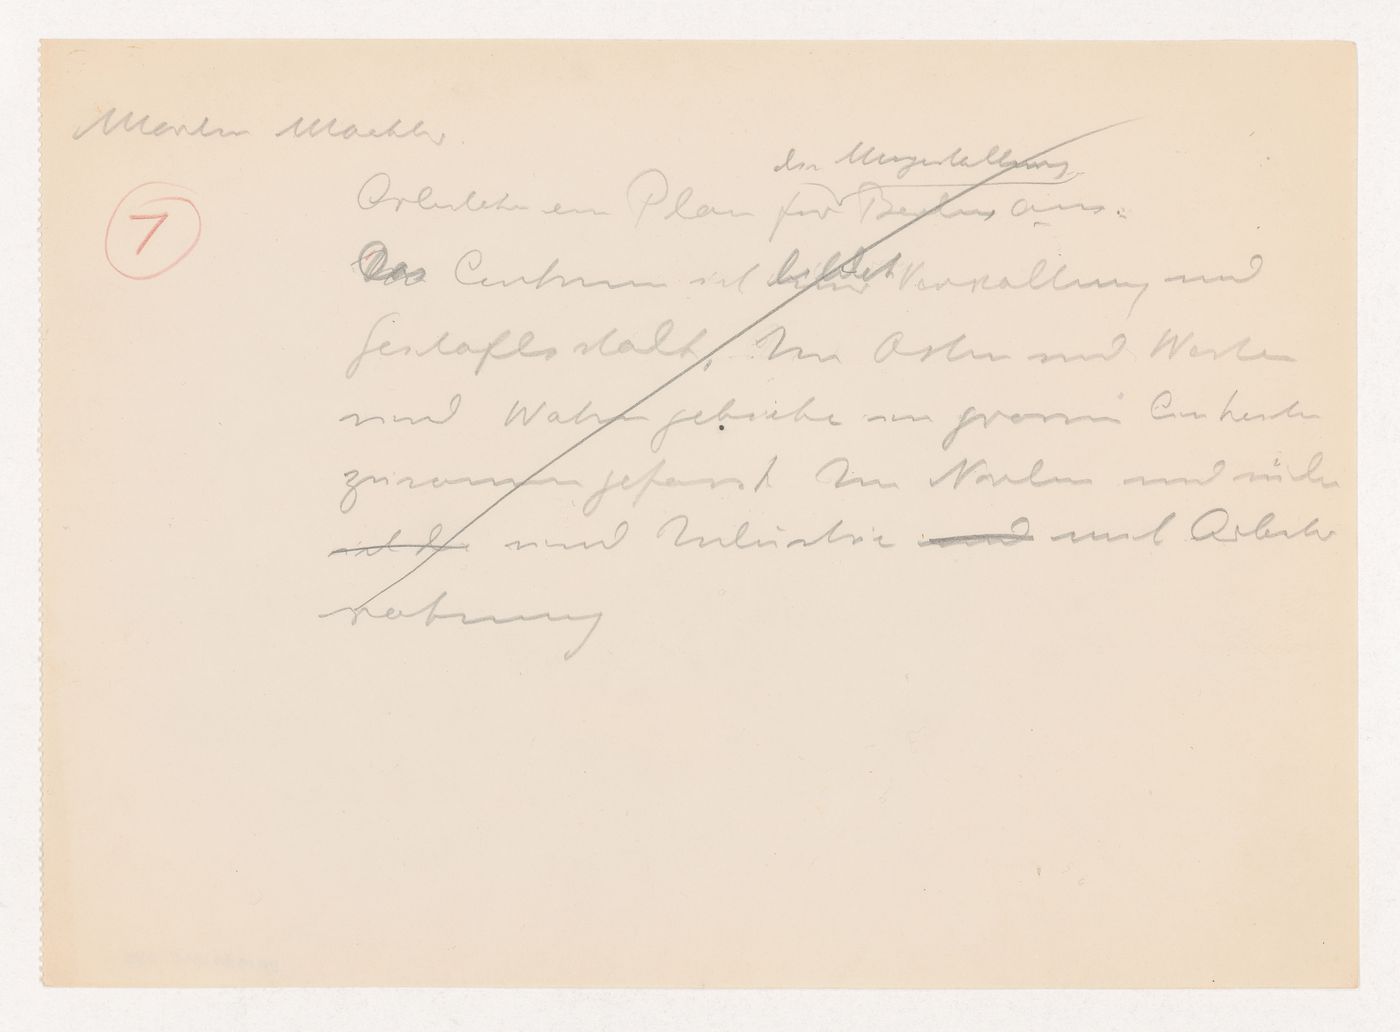 Martin Maechler
7
der Umgestaltung
Arbeitete ein Plan für Berlins aus.
Das Centrum ist bildet Verwaltung und
Geschäftsstadt. Im Osten und Westen
sind Wohngebiete in grossen Einheiten
zusammengefasst Im Norden und süden
sind Industrie und mit Arbeiter
wohnung